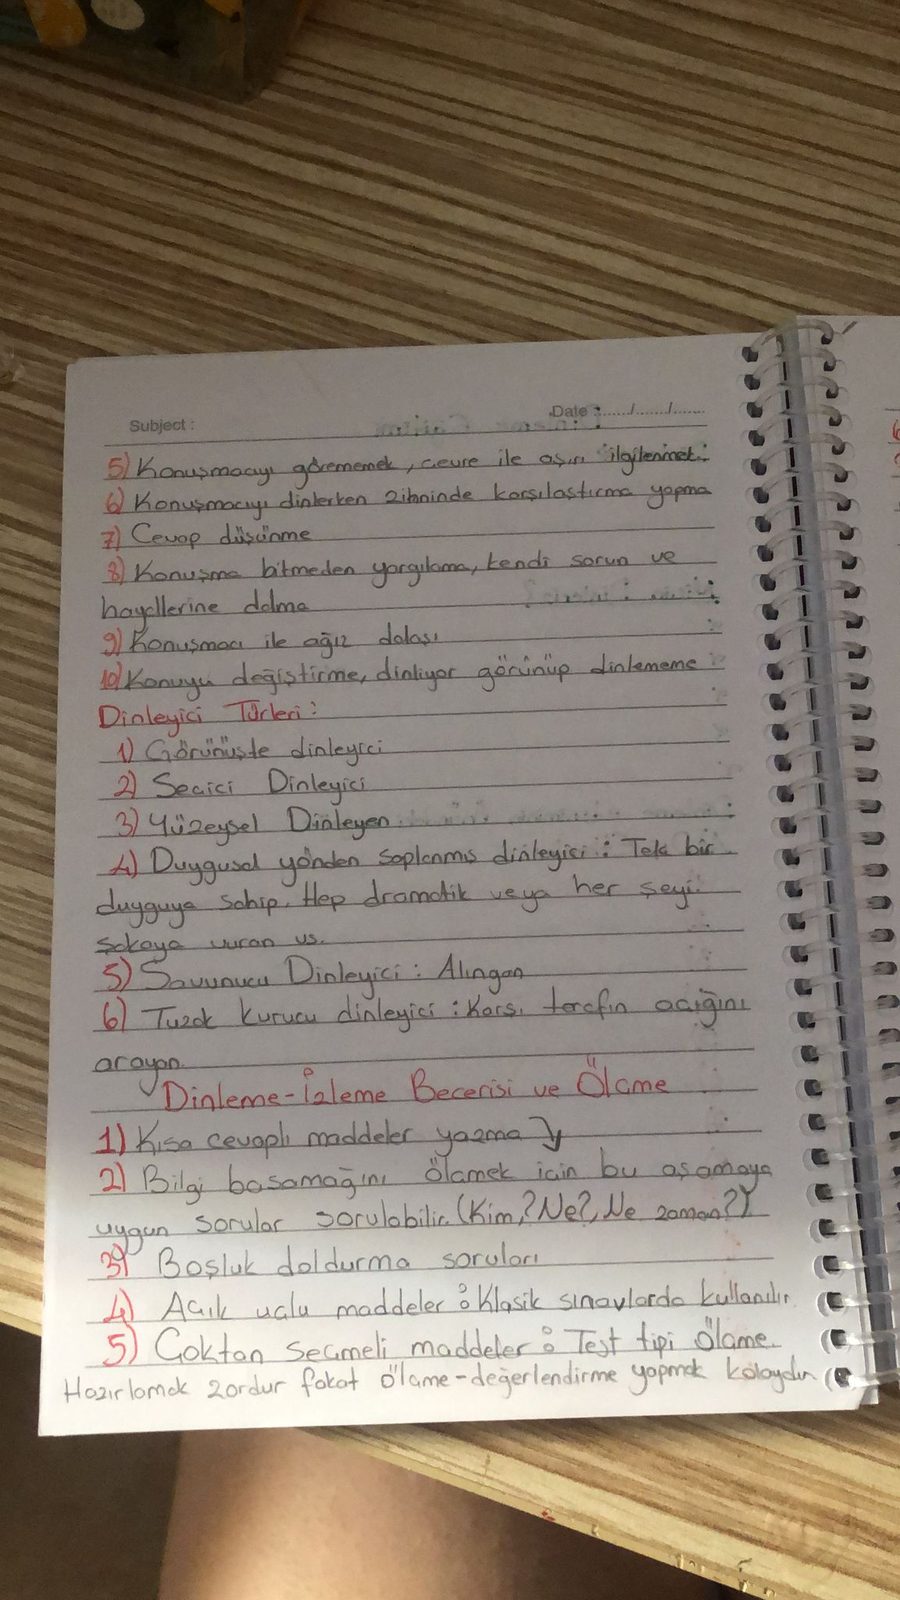 Subject :
Date :....../......./.......
5) Konuşmacıyı görememek, çevre ile aşırı ilgilenmek.
6) Konuşmacıyı dinlerken zihninde karşılaştırma yapma
7) Cevap düşünme
8) Konuşma bitmeden yargılama, kendi sorun ve
hayallerine dalma
9) Konuşmacı ile ağız dalaşı
10) Konuyu değiştirme, dinliyor görünüp dinlememe
Dinleyici Türleri :
1) Görünüşte dinleyici
2) Seçici Dinleyici
3) Yüzeysel Dinleyen
4) Duygusal yönden saplanmış dinleyici : Tek bir
duyguya sahip. Hep dramatik veya her şeyi
şakaya vuran vs.
5) Savunucu Dinleyici : Alıngan
6) Tuzak kurucu dinleyici : Karşı tarafın açığını
arayan
Dinleme-İzleme Becerisi ve Ölçme
1) Kısa cevaplı maddeler yazma
2) Bilgi basamağını ölçmek için bu aşamaya
uygun sorular sorulabilir. (Kim,? Ne?, Ne zaman?)
3) Boşluk doldurma soruları
4) Açık uçlu maddeler : Klasik sınavlarda kullanılır
5) Çoktan seçmeli maddeler : Test tipi ölçme.
Hazırlamak zordur fakat ölçme-değerlendirme yapmak kolaydır